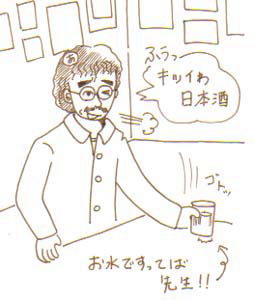 ふうっ
キツイわ
日本酒
ゴトッ
お水ですってば
先生!!